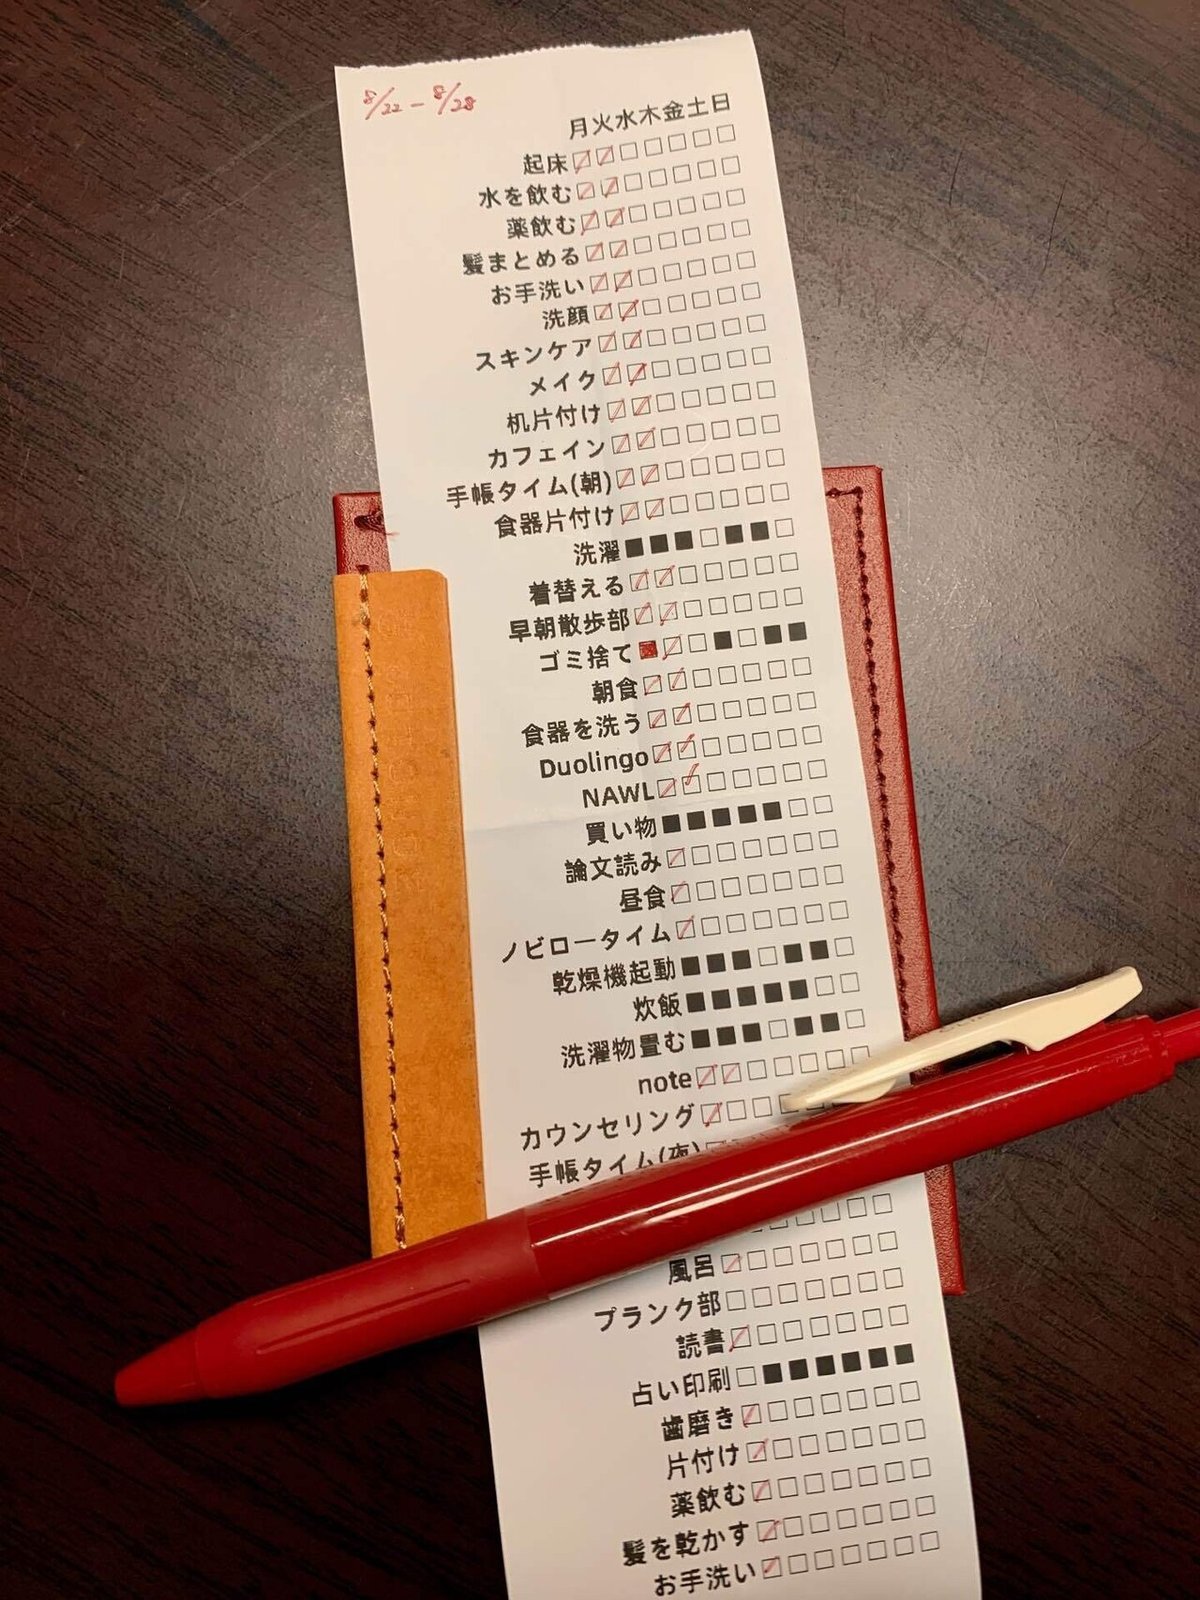 8/22 - 8/28
月火水木金土日
起床☑☑□□□□□
水を飲む☑☑□□□□□
薬飲む☑☑□□□□□
髪まとめる☑☑□□□□□
お手洗い☑☑□□□□□
洗顔☑☑□□□□□
スキンケア☑☑□□□□□
メイク☑☑□□□□□
机片付け☑☑□□□□□
カフェイン☑☑□□□□□
手帳タイム(朝)☑☑□□□□□
食器片付け☑☑□□□□□
洗濯■■■□■■□
着替える☑☑□□□□□
早朝散歩部☑☑□□□□□
ゴミ捨て■☑□■□■■
朝食☑☑□□□□□
食器を洗う☑☑□□□□□
Duolingo☑☑□□□□□
NAWL☑☑□□□□□
買い物■■■■■□□
論文読み☑□□□□□□
昼食☑□□□□□□
ノビロータイム☑□□□□□□
乾燥機起動■■■□■■□
炊飯■■■■■□□
洗濯物畳む■■■□■■□
note☑☑□□□□□
カウンセリング☑□□□□
手帳タイム(夜)
風呂☑□□□□□□
プランク部□□□□□□□
読書☑□□□□□□
占い印刷□■■■■■■
歯磨き☑□□□□□□
片付け☑□□□□□□
薬飲む☑□□□□□□
髪を乾かす☑□□□□□□
お手洗い☑□□□□□□